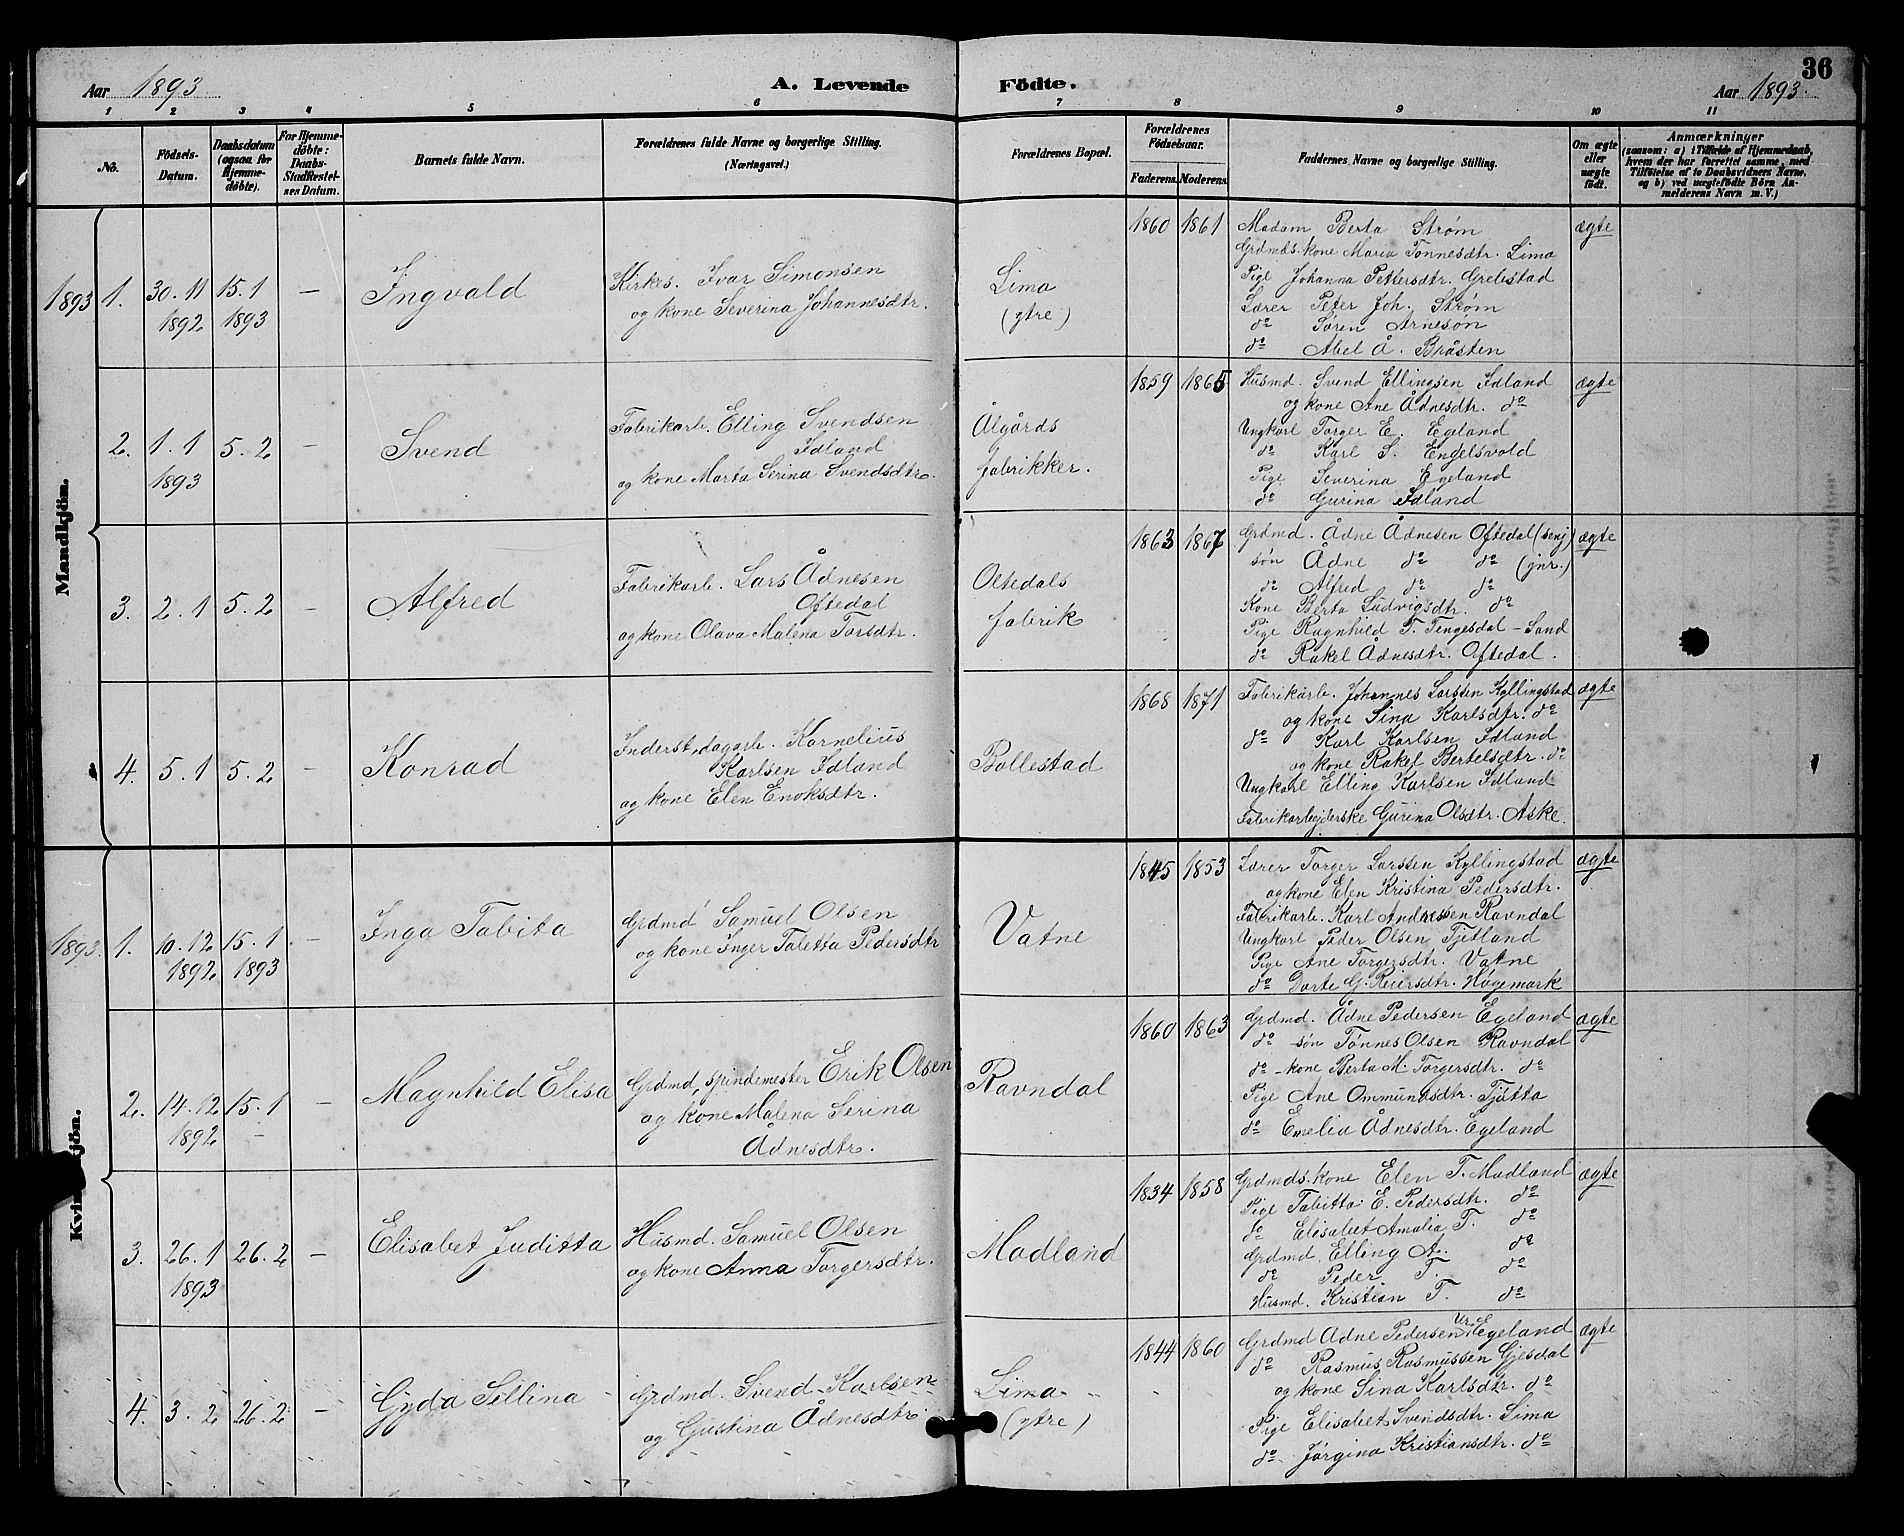 36
Aar 1893
A. Levende Födte.
Aar 1893.
1 2 3 4 5 6 7 8 9 10 11
No.
Födsels-
Datum.
Daabsdatum
(ogsaa for
Hjemme-
döbte).
For Hjemme-
döbte:
Daabs-
Stadfestel-
ses Datum.
Barnets fulde Navn.
Forældrenes fulde Navne og borgerlige Stilling.
(Næringsvei.)
Forældrenes Bopæl.
Forældrenes
Födselsaar.
Faderens. Moderens.
Faddernes Navne og borgerlige Stilling.
Om ægte
eller
uægte
födt.
Anmærkninger
(saasom: a) i Tilfælde af Hjemmedaab,
hvem der har forrettet samme, med
Tilföielse af to Daabsvidners Navne,
og b) ved uægtefödte Börn An-
melderens Navn m. V.)
Mandkjön.
1893 1. 30.11 15.1 —
1892 1893
Ingvald
Kirkes. Ivar Simonsen
og kone Severina Johannesdtr.
Lima
(ytre)
1860 1861
Madam Berta Strøm
Grdmds. kone Maria Tonnesdtr. Lima
Pige Johanna Pettersdtr. Grelestad
Lærer Peter Joh. Strøm
do Søren Arnesøn
do Abel Å. Bråsten
ægte
2. 1.1 5.2 —
1893
Svend
Fabrikarb. Elling Svendsen
Idland
og kone Marta Serina Svendsdtr.
Ålgårds
fabrikker.
1859 1865
Husmd. Svend Ellingsen Idland
og kone Ane Ådnesdtr. do
Ungkarl Torger E. Egeland
do Karl S. Engelsvold
Pige Severina Egeland
do Gurina Idland
ægte
3. 2.1 5.2 —
Alfred
Fabrikarb. Lars Ådnesen
Oftedal
og kone Olava Malena Torsdtr.
Oltedals
fabrik
1863 1867
Grdmd. Ådne Ådnesen Oftedal (senj)
søn Ådne do do (jnr.)
do Alfred do do
Kone Berta Ludvigsdtr. do
Pige Ragnhild T. Tengesdal - Sand
do Rakel Ådnesdtr. Oftedal.
ægte
4. 5.1 5.2 —
Konrad
Inderst, dagarb. Kornelius
Karlsen Idland
og kone Elen Enoksdtr.
Bollestad
1868 1871
Fabrikarb. Johannes Larsen Kyllingstad
og kone Sina Karlsdtr. do
do Karl Karlsen Idland
og kone Rakel Bertelsdtr. do
Ungkarl Elling Karlsen Idland
Fabrikarbejderske Gurina Olsdtr. Aske.
ægte
Kvindekjön.
1893. 1. 10.12 15.1 —
1892 1893
Inga Tabita
Grdmd Samuel Olsen
og kone Inger Taletta Pedersdtr
Vatne
1845 1853
Lærer Torger Larssen Kyllingstad
og kone Elen Kristina Pedersdtr.
Fabrikarb. Karl Andressen Ravndal
Ungkarl Peder Olsen Tjetland
Pige Ane Torgersdtr. Vatne
do Dorte G. Reiersdtr. Høgemark
ægte
2. 14.12 15.1 —
1892 —
Magnhild Elisa
Grdmd, spindemester Erik Olsen
og kone Malena Serina
Ådnesdtr.
Ravndal
1860 1863
Grdmd. Ådne Pedersen Egeland
do søn Tønnes Olsen Ravndal
do - kone Berta M. Torgersdtr. do
Pige Ane Ommundsdtr. Tjötta
do Emelia Ådnesdtr. Egeland
ægte
3. 26.1 26.2 —
1893
Elisabet Juditta
Husmd. Samuel Olsen
og kone Anna Torgersdtr.
Madland
1834 1858
Grdmds. kone Elen T. Madland
Pige Tabitta E. Pedersdtr. do
do Elisabet Amalia T. do
Grdmd. Elling A. do
do Peder T. do
Husmd. Kristian T. do
ægte
4. 3.2 26.2 —
Gyda Sellina
Grdmd. Svend Karlsen
og Gustina Ådnesdtr
Lima
(ytre)
1844 1860
Grdmd Adne Pedersen Egeland
do Rasmus Rasmussen Gjesdal
og kone Sina Karlsdtr. do
Pige Elisabet Svendsdtr. Lima
do Jørgina Kristiansdtr. do
ægte